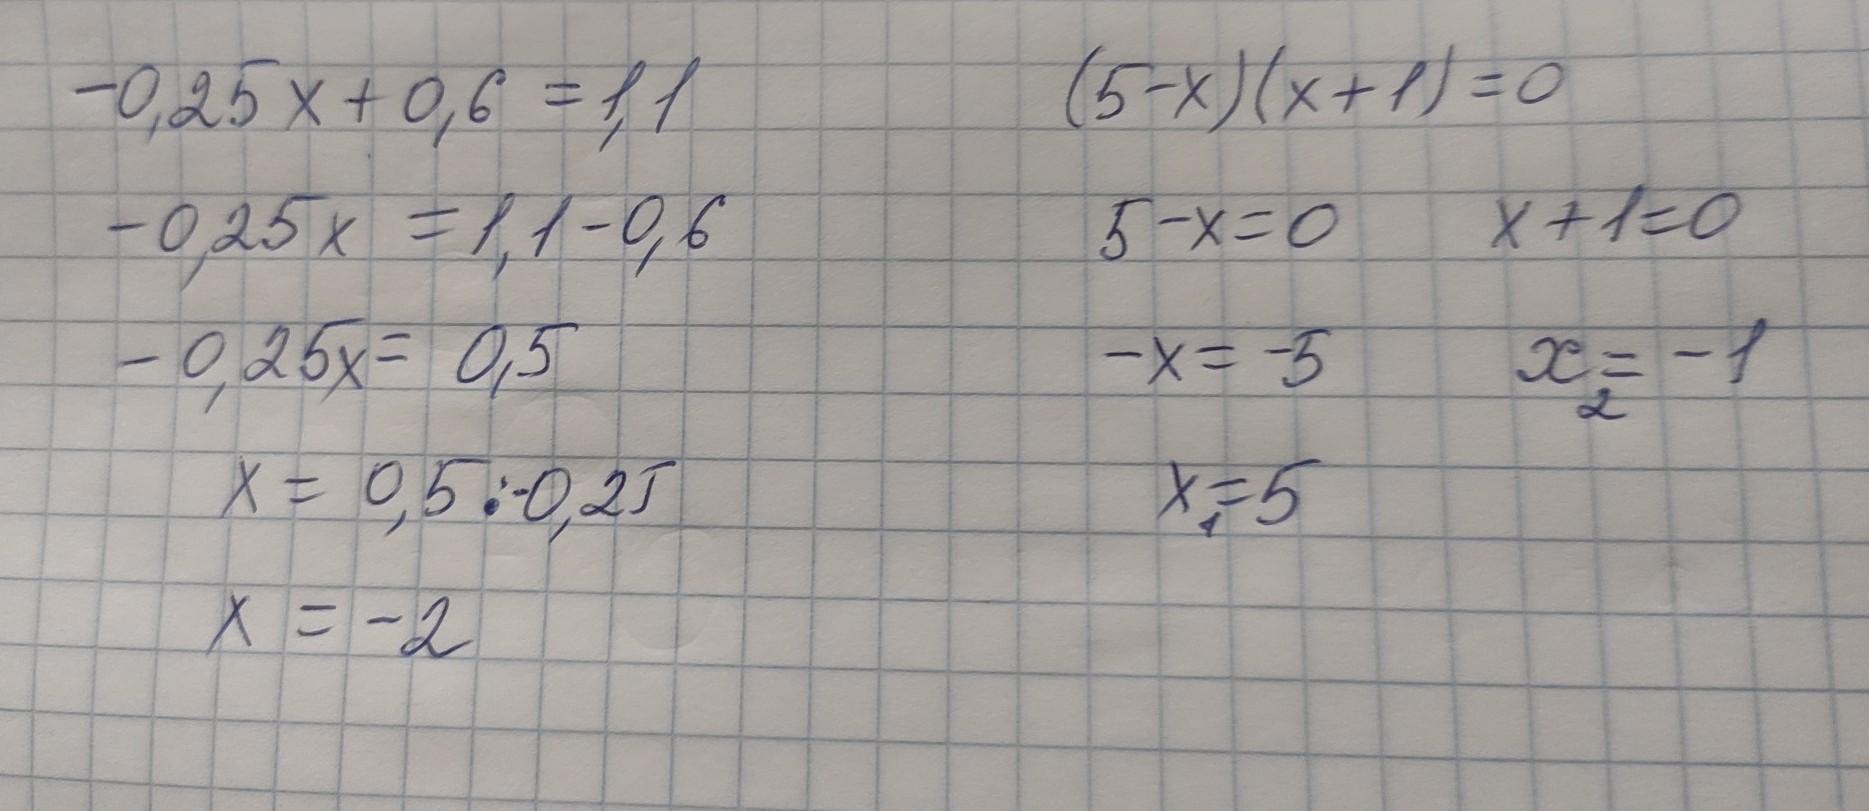 -0,25x+0,6=1,1
-0,25x=1,1-0,6
-0,25x=0,5
x=0,5:-0,25
x=-2
(5-x)(x+1)=0
5-x=0 x+1=0
-x=-5 x₂=-1
x₁=5